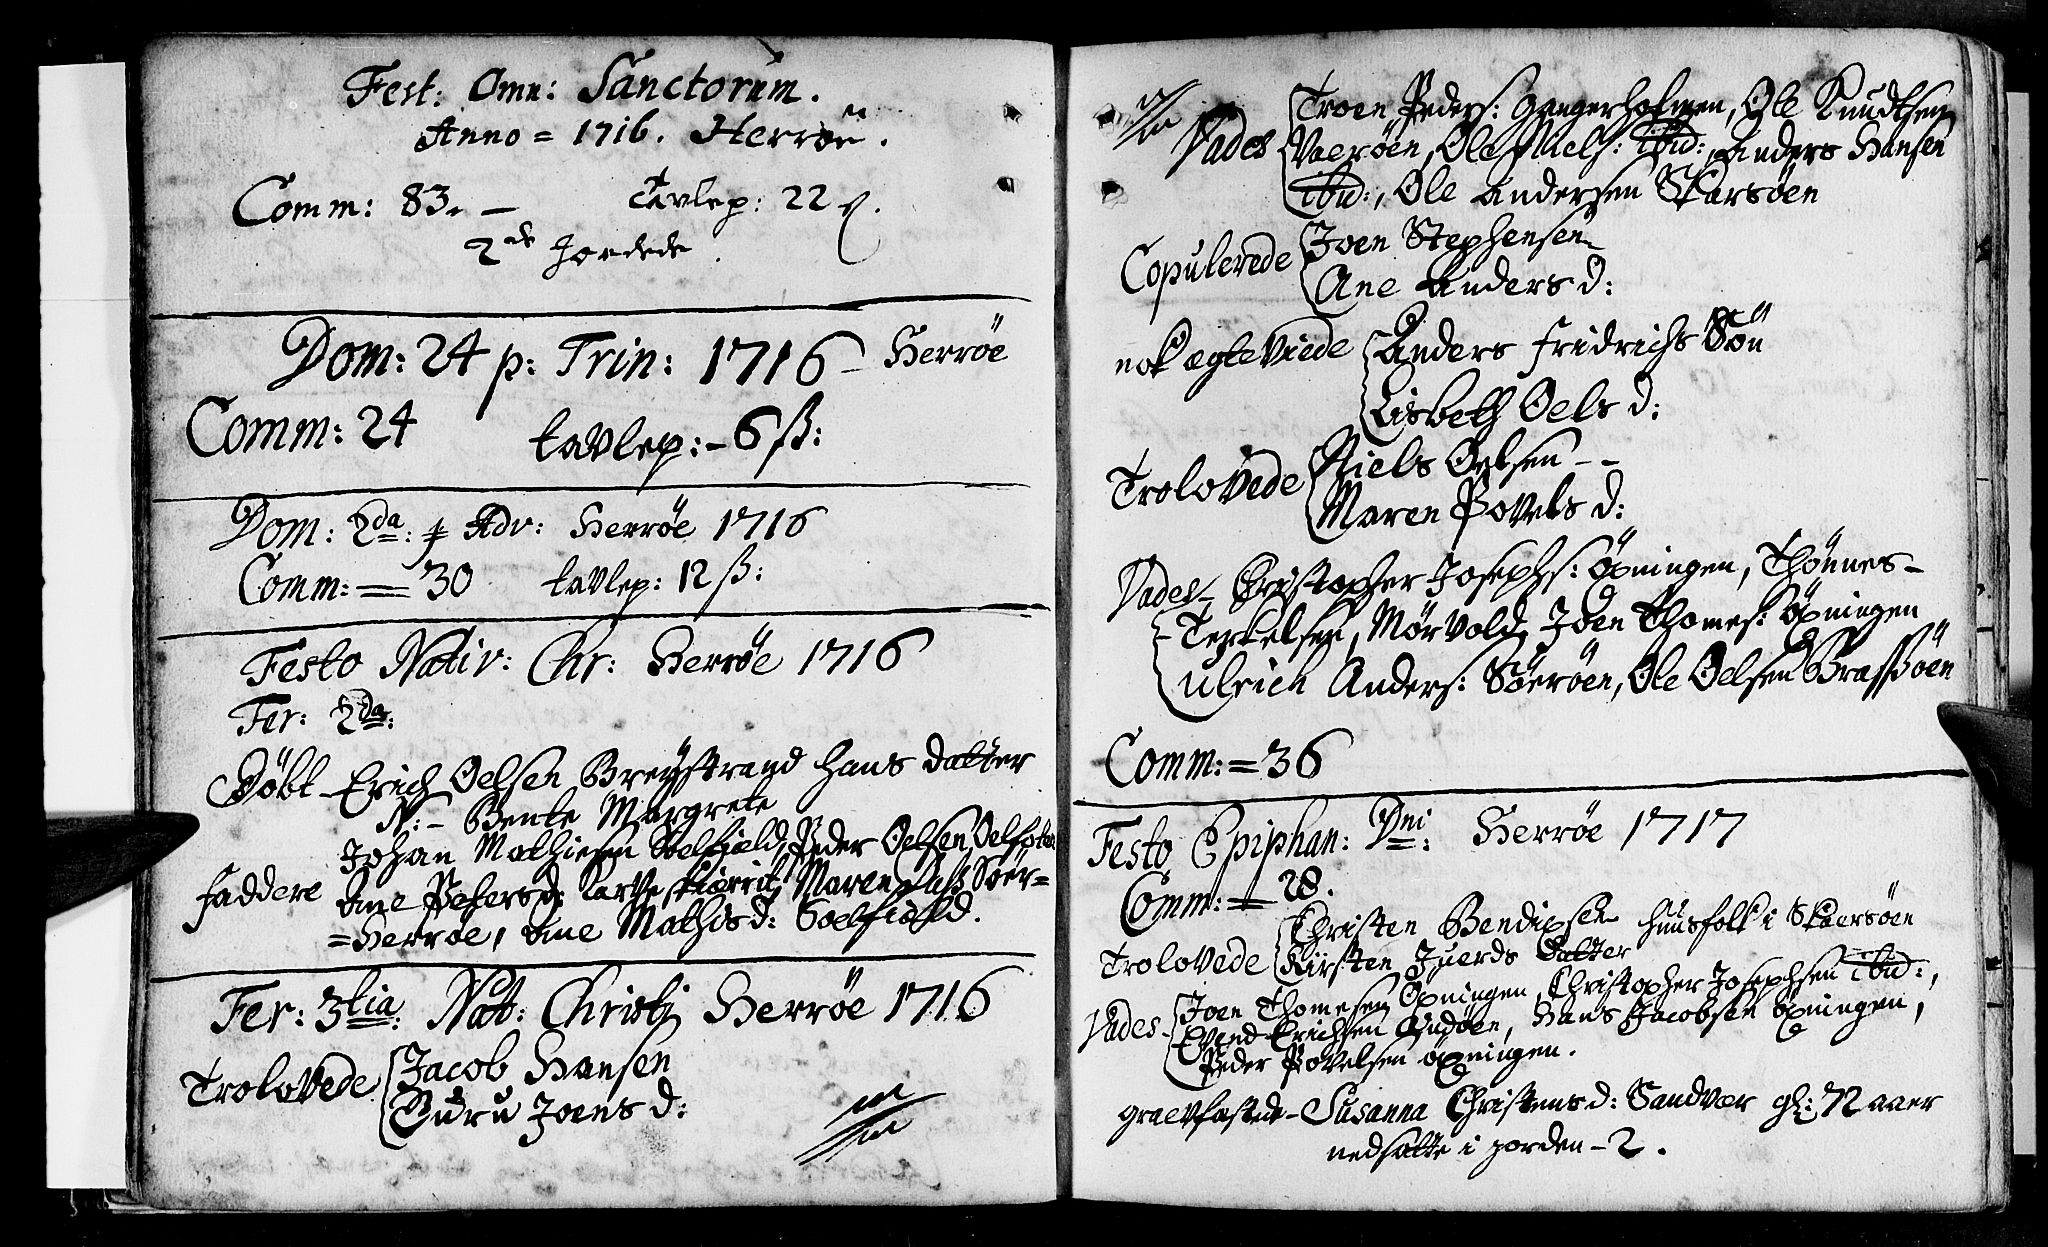 Fest: Omn: Sanctorum.
Anno = 1716. Herröen.
Comm: 83. — tavlep: 22 ß.
2de Jordede.
Dom: 24 p: Trin: 1716 – Herröe
Comm: 24 tavlep: – 6 ß:
Dom: 2da: Adv: Herröe 1716
Comm: = 30 tavlep: 12 ß:
Festo Nativ: Chr: Herröe 1716
Fer: 2da:
Döbt – Erich Oelsen Breystrand hans datter
N: – Bente Margrete
Johan Mathiesen Peder Oelsen
faddere Ane Peters d: Maren Söer=
=Herröe, Ane Mathis d:
Fer: 3tia: Nat: Christi Herröe 1716
Trolovede Jacob Hansen
Guru Joens d:
Vades Troen Peders: Gangerholmen, Ole Knudtsen
Vaeröen, Ole Niels: ibid:, Anders Hansen
ibid:, Ole Andersen Skarsöen
Copulerede Joen Stephensen
Ane Anders d:
nok ægteviede Anders Fridrichs Sön
Lisbeth Oels d:
Trolovede Niels Oelsen – –
Maren Povels d:
Vades – Christopher Josephs: Öxningen, Thönnes –
– Terkelsen, Mörvold, Joen Thomes: Öxningen
Ulrich Anders: Söeröen, Ole Oelsen Brassöen
Comm: = 36
Festo Epiphan: Dni: Herröe 1717
Comm: = 28.
Trolovede Christen Bendixsen huusfolk i Skaersöen
Kirsten Juerds datter
Vades – Joen Thomesen Öxningen, Christopher Josephsen ibid:,
Evend Erichsen Andöen, Hans Jacobsen Öxningen,
Peder Povelsen Öxningen.
graevfæstede – Susanna Christens d: Sandvær gl: 72 aaer
nedsatte i jorden – 2.